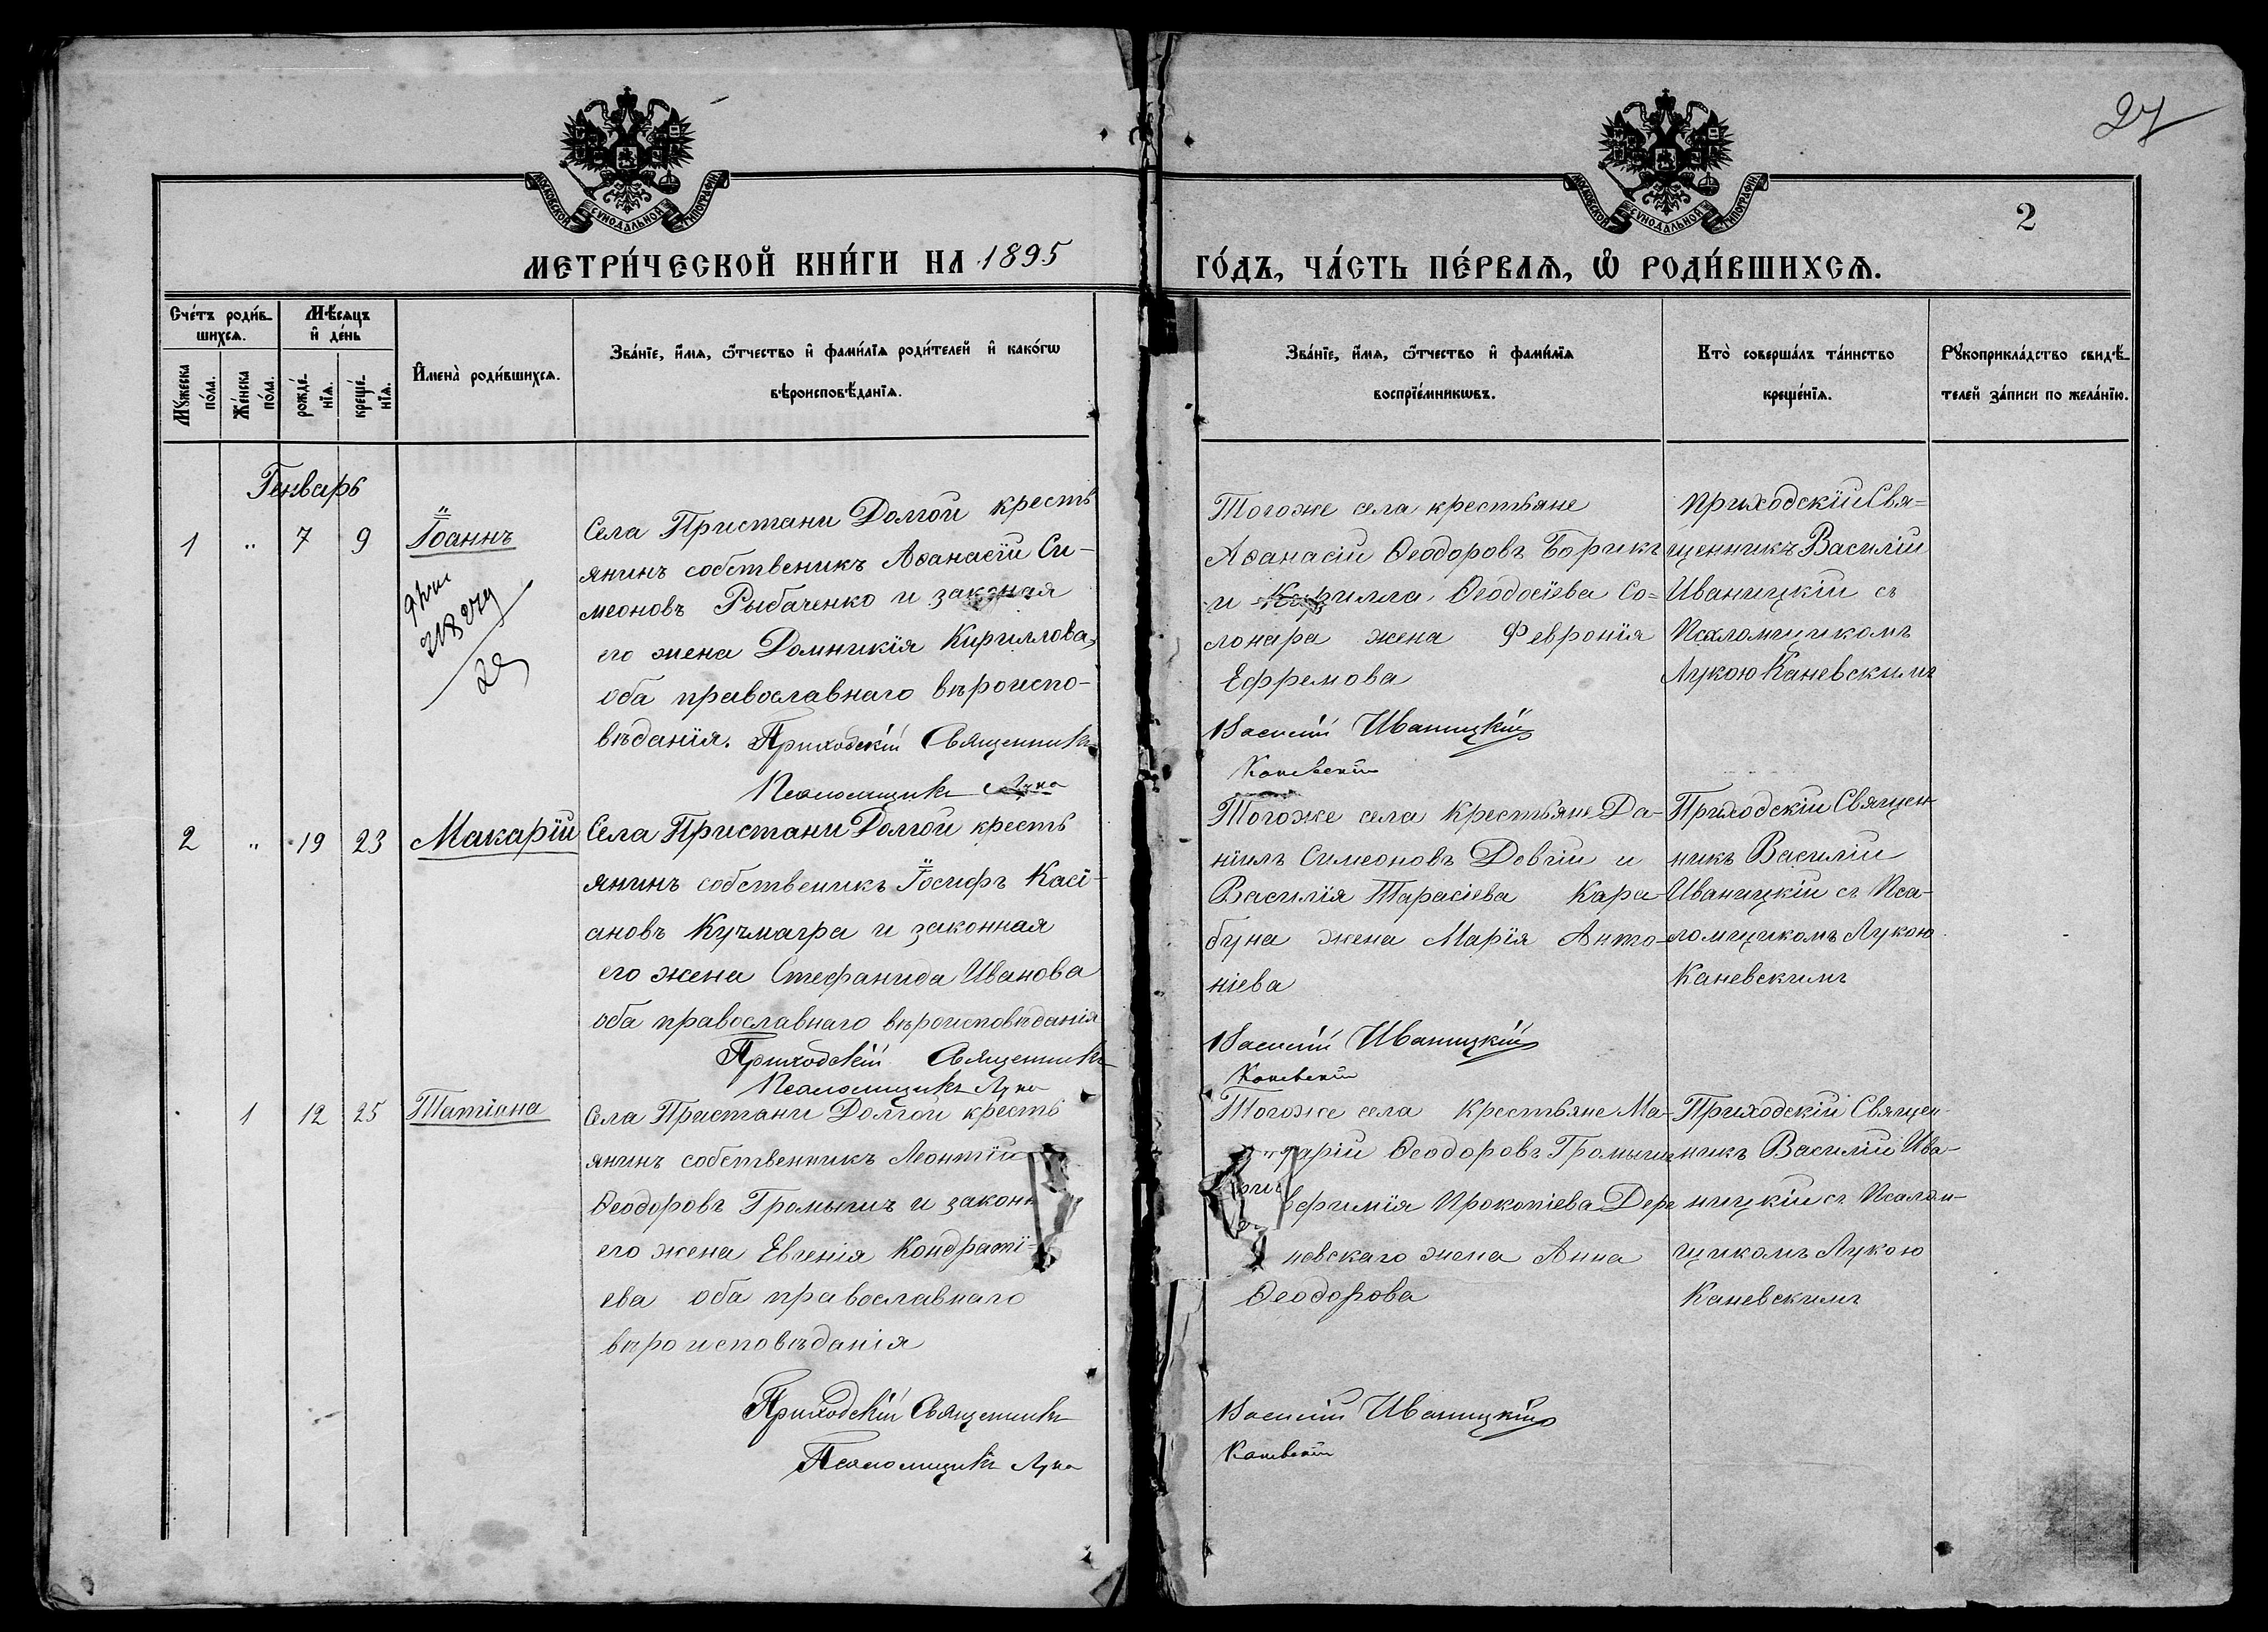 27
2
МОСКОВСКОЙ СѴНОДАЛЬНОЙ ТИПОГРАФІИ
МОСКОВСКОЙ СѴНОДАЛЬНОЙ ТИПОГРАФІИ
МЕТРИ́ЧЕСКОЙ КНИ́ГИ НА 1895
ГО́ДЪ, ЧА́СТЬ ПЕ́РВАѦ, Ѡ҆ РОДИ́ВШИХСѦ.
Сче́тъ роди́в-
шихсѧ.
Мꙋжеска
по́ла.
Же́нска
по́ла.
Мѣ́сѧцъ
и҆ де́нь
рожде́-
нїѧ.
креще́-
нїѧ.
И҆мена̀ роди́вшихсѧ.
Зва́нїе, и҆́мѧ, ѻ҆́тчество и҆ фами́лїѧ роди́телей и҆ како́гѡ
вѣроисповѣ́данїѧ.
Зва́нїе, и҆́мѧ, ѻ҆́тчество и҆ фами́лїѧ
воспрїе́мникѡвъ.
Кто̀ соверша́лъ та́инство
креще́нїѧ.
Рꙋкоприкла́дство свидѣ́-
телей за́писи по жела́нїю.
Генварь
1 " 7 9 Іоаннъ
Села Пристани Долгой кресть
янинъ собственикъ Аѳанасій Си-
меоновъ Рыбаченко и законая
его жена Домникія Кириллова,
оба православнаго вѣроиспо-
вѣданія. Приходскій Священникъ
Псаломщикъ Лука
Тогоже села крестьяне
Аѳанасій Ѳеодоровъ Борикъ
и Кирилла Ѳеодосіева Со-
лонара жена Февронія
Ефремова
Василій Иваницкій
Каневскій
Приходскій Свя=
щенникъ Василій
Иваницкій съ
Псаломщикомъ
Лукою Каневскимъ
2 " 19 23 Макарій
Села Пристани Долгой кресть
янинъ собственикъ Іосифъ Касі-
ановъ Кучмагра и законная
его жена Стефанида Иванова
оба православнаго вѣроисповѣданія
Приходскій Священникъ
Псаломщикъ Лука
Тогоже села Крестьяне Да-
ніилъ Симеоновъ Довгій и
Василія Тарасіева Кара-
буна жена Марія Анто-
ніева
Василій Иваницкій
Каневскій
Приходскій Священ
никъ Василій
Иваницкій съ Пса-
ломщикомъ Лукою
Каневскимъ
1 12 25 Татіана
Села Пристани Долгой кресть
янинъ собственникъ Леонтій
Ѳеодоровъ Громыгъ и законн
его жена Евгенія Кондраті-
ева оба православнаго
вѣроисповѣданія
Приходскій Священникъ
Псаломщикъ Лука
Тогоже села Крестьяне Ма-
карій Ѳеодоровъ Громыгъ
ефимія Прокопіева Дере
невскаго жена Анна
Ѳеодорова
Василій Иваницкій
Каневскій
Приходскій Священ-
никъ Василій Ива-
ницкій съ Псалом-
щикомъ Лукою
Каневскимъ